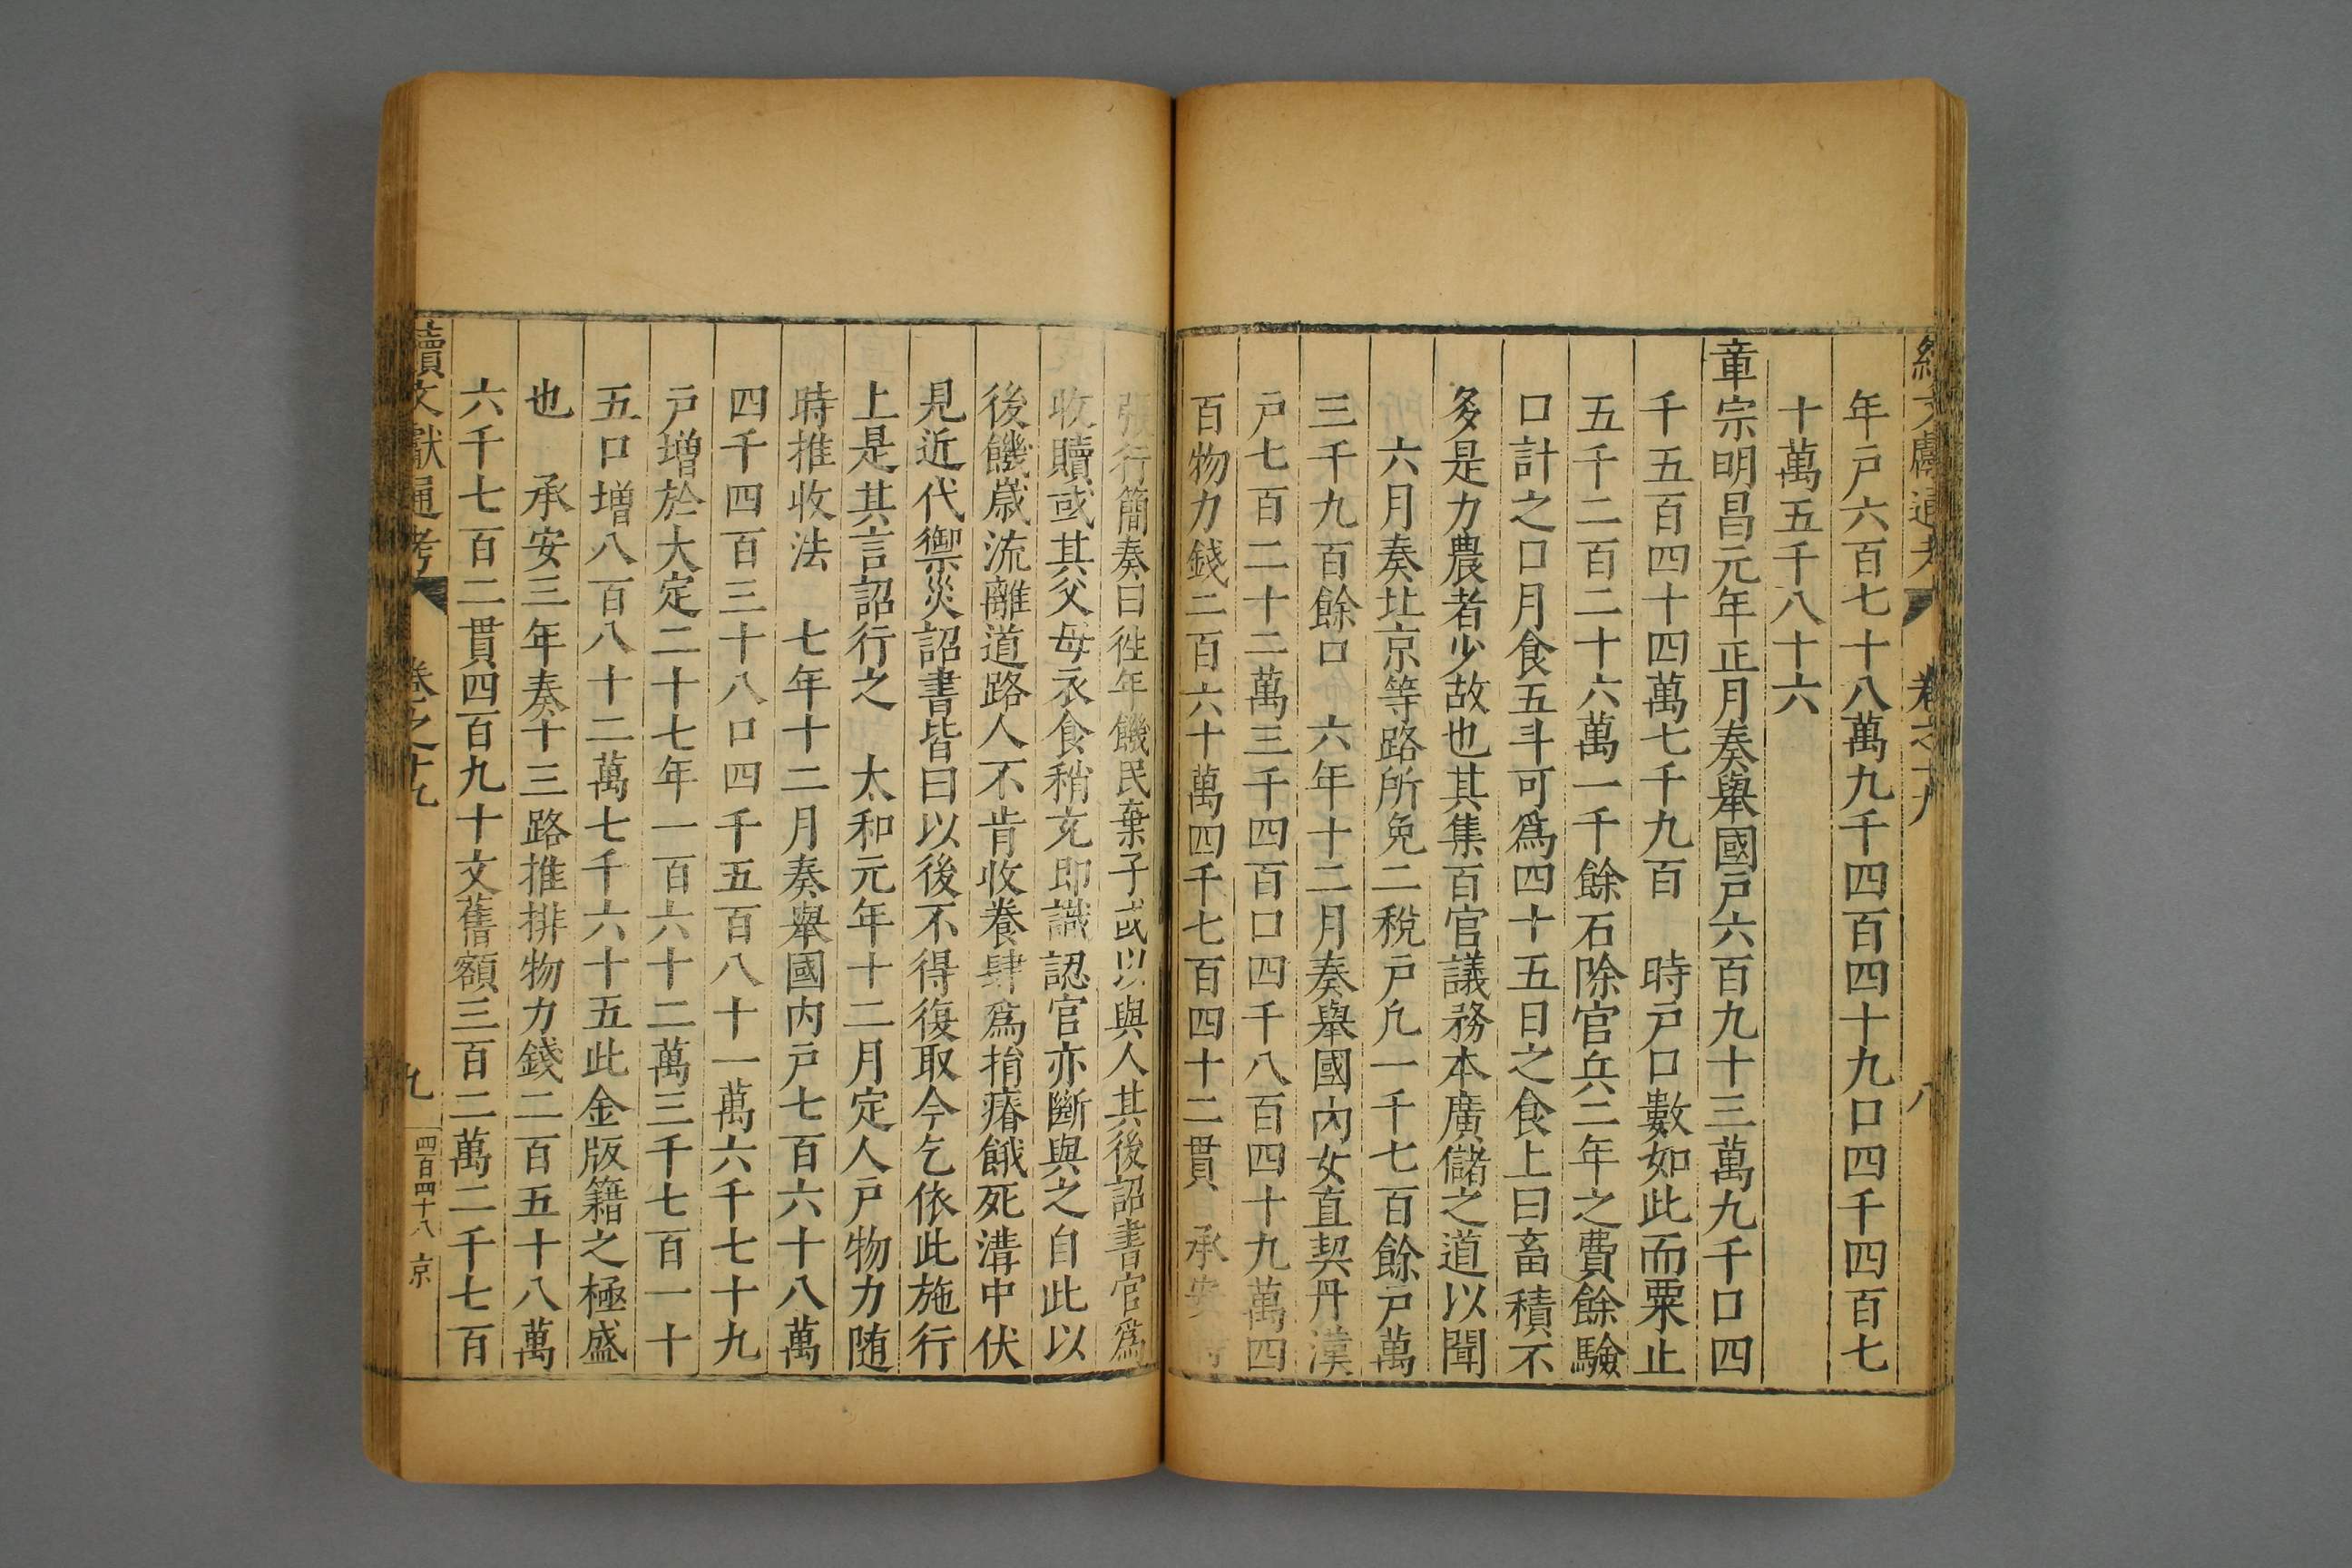 續文獻通考 卷之十九 八
年戸六百七十八萬九千四百四十九口四千四百七
十萬五千八十六
章宗明昌元年正月奏舉國戸六百九十三萬九千口四
千五百四十四萬七千九百 時戸口數如此而粟止
五千二百二十六萬一千餘石除官兵二年之費餘驗
口計之口月食五斗可爲四十五日之食上曰畜積不
多是力農者少故也其集百官議務本廣儲之道以聞
六月奏北京等路所免二稅戸凡一千七百餘戸萬
三千九百餘口 六年十二月奏舉國內女直契丹漢
戸七百二十二萬三千四百口四千八百四十九萬四
百物力錢二百六十萬四千七百四十二貫 承安
張行簡奏曰徃年饑民棄子或以與人其後詔書官爲
收贖或其父母衣食稍充即識認官亦斷與之自此以
後饑歲流離道路人不肯收養肆爲捐瘠餓死溝中伏
見近代禦災詔書皆曰以後不得復取今乞依此施行
上是其言詔行之 太和元年十二月定人戸物力随
時推收法 七年十二月奏舉國内戸七百六十八萬
四千四百三十八口四千五百八十一萬六千七十九
戸增於大定二十七年一百六十二萬三千七百一十
五口增八百八十二萬七千六十五此金版籍之極盛
也 承安三年奏十三路推排物力錢二百五十八萬
六千七百二貫四百九十文舊額三百二萬二千七百
續文獻通考 卷之十九 九 四百四十八 京